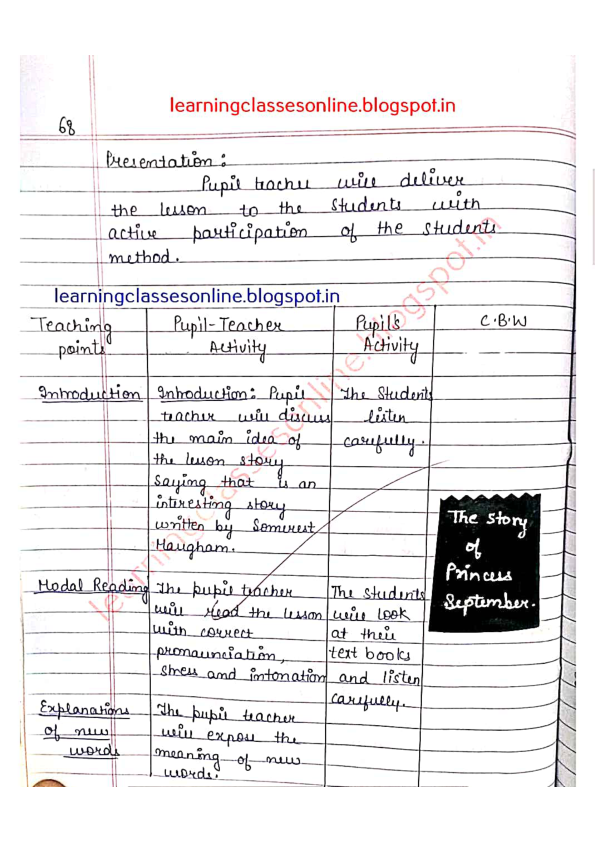 learningclassesonline.blogspot.in
68
Presentation :
Pupil teacher will deliver
the lesson to the students with
active participation of the students
method.
learningclassesonline.blogspot.in
Teaching points
Pupil-Teacher Activity
Pupil's Activity
C.B.W
Introduction
Introduction: Pupil
teacher will discuss
the main idea of
the lesson story
saying that is an
interesting story
written by Somerest
Maugham.
The Students
listen
carefully.
The story
of
Princess
September.
Modal Reading
The pupil teacher
will read the lesson
with correct
pronaunciation,
stress and intonation
The students
will look
at their
text books
and listen
carefully.
Explanations
of new
words
The pupil teacher
will expose the
meaning of new
words.
learningclassesonline.blogspot.in